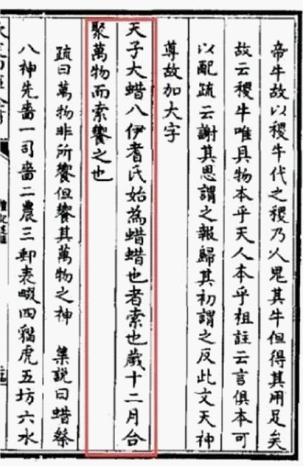 帝牛故以稷牛代之稷乃人思其牛但得其用足矣
故云稷牛唯具物本乎天人本乎祖註云言俱本可
以配疏云謝其恩謂之報歸其初謂之反此文天神
尊故加大字
天子大蜡八伊耆氏始為蜡蜡也者索也歲十二月合
聚萬物而索饗之也
疏曰萬物非所饗但饗其萬物之神 集說曰蜡祭
八神先嗇一司嗇二農三郵表畷四貓虎五坊六水